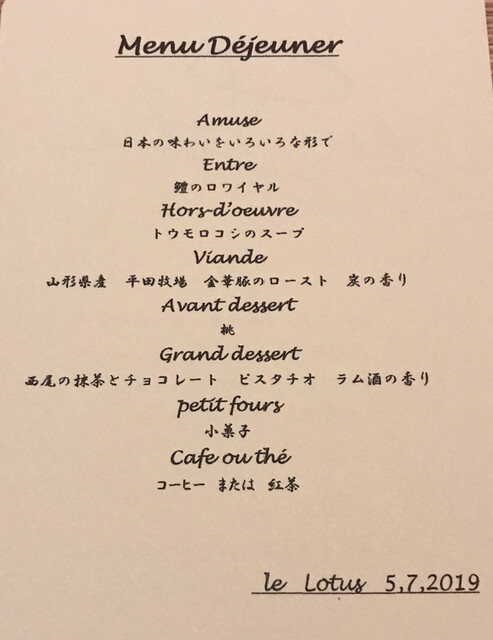 Menu Déjeuner
Amuse
日本の味わいをいろいろな形で
Entre
鱧のロワイヤル
Hors-d'oeuvre
トウモロコシのスープ
Viande
山形県産 平田牧場 金華豚のロースト 炭の香り
Avant dessert
桃
Grand dessert
西尾の抹茶とチョコレート ピスタチオ ラム酒の香り
petit fours
小菓子
Cafe ou thé
コーヒー または 紅茶
le Lotus 5,7,2019